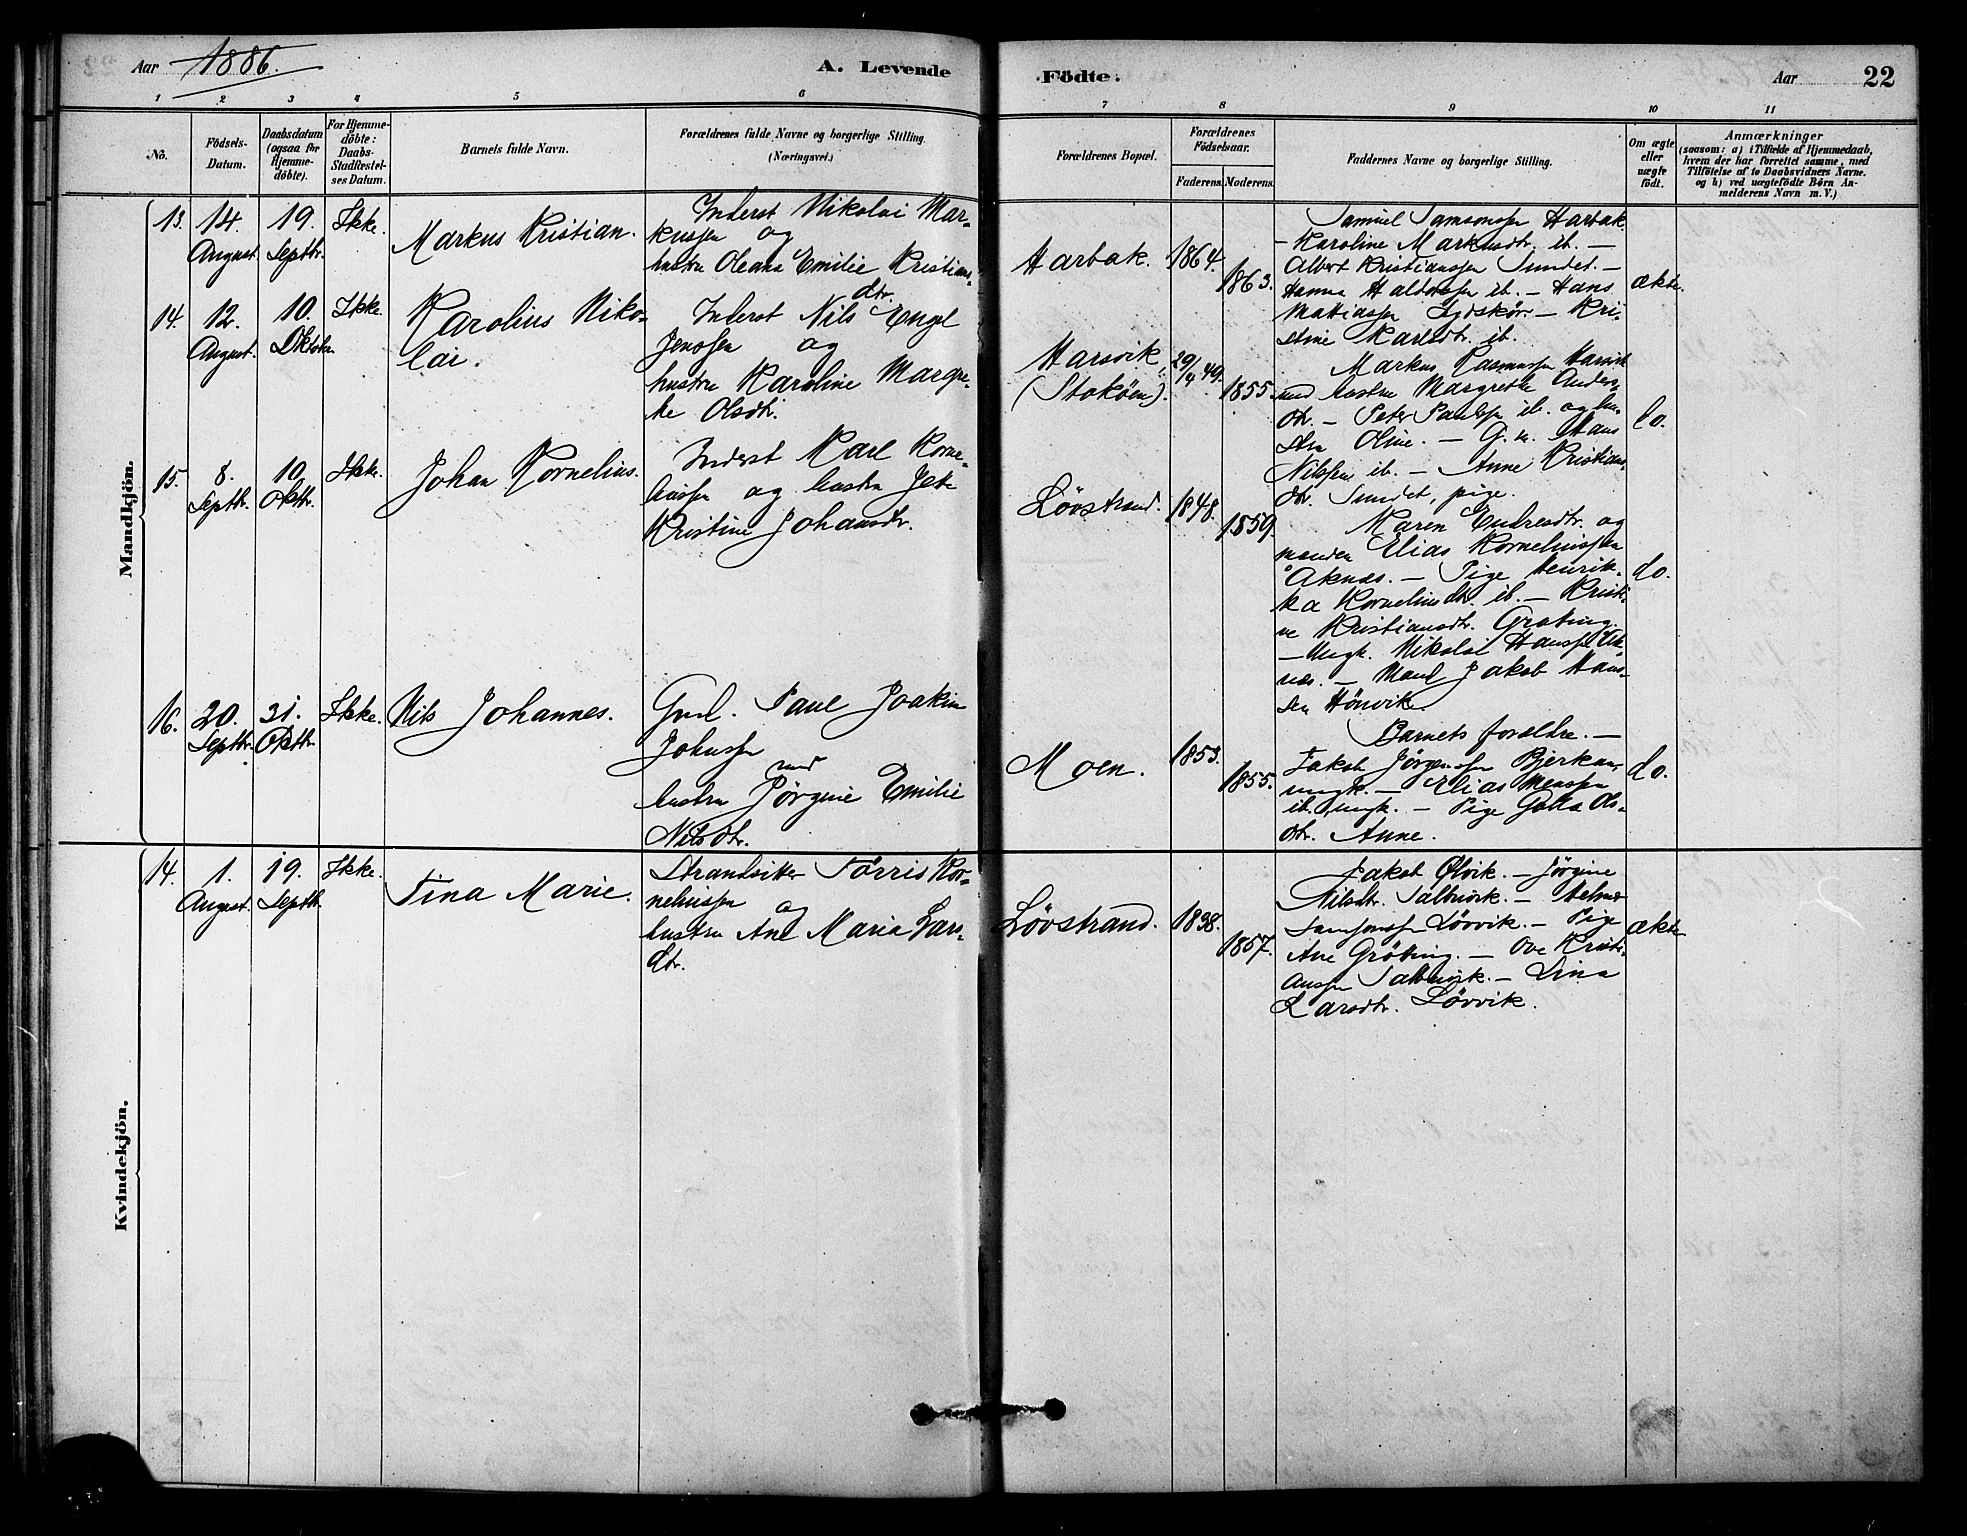 Aar 1886.
A. Levende
Födte.
Aar
22
1 2 3 4 5 6
7 8 9 10 11
No.
Födsels-
Datum.
Daabsdatum
(ogsaa for
Hjemme-
döbte).
For Hjemme-
döbte:
Daabs-
Stadfæstel-
ses Datum.
Barnets fulde Navn.
Forældrenes fulde Navne og borgerlige Stilling.
(Næringsvei.)
Forældrenes Bopæl.
Forældrenes
Födselsaar.
Faderens.
Moderens.
Faddernes Navne og borgerlige Stilling.
Om ægte
eller
uægte
födt.
Anmærkninger
(saasom: a) i Tilfælde af Hjemmedaab,
hvem der har forrettet samme, med
Tilföielse af to Daabsvidners Navne.
og b) ved uægtefödte Börn An-
melderens Navn m.V.)
Mandkjön.
13.
14.
August.
19.
Septbr.
Ikke.
Markus Kristian.
Inderst Nikolai Mar-
kussen og
hustru Oleana Emilie Kristians-
dtr.
Harbak.
1864.
1863.
Samuel Samsonssen Harbak
- Karoline Markusdtr. ib. -
Albert Kristianssen Sundet. -
Hanna ib. - Hans
Matiassen - Kri-
stine Karlsdtr. ib.
ækte.
14.
12.
August.
10.
Oktobr.
Ikke.
Karolius Niko-
lai.
Inderst Nils Engel
Jenssen og
hustru Karoline Margre-
te Olsdtr.
Harsvik
(Stokøen).
29/4 49.
1855.
Markus Rasmussen Harsvik
med hustru Margrethe Anders-
dtr. - Peter Paulssen ib. og hu-
stru Oline. - G.m. Hans
Nilssen ib. - Anne Kristians-
dtr. Sundet, pige.
do.
15.
8.
Septbr.
10.
Oktbr.
Ikke.
Johan Kornelius.
Inderst Karl Korne-
liussen og hustru Jete
Kristine Johansdtr.
Lövstrand.
1848.
1859.
Maren Endresdtr. og
manden Elias Korneliussen
Åknæs. - Pige Henrik-
ka Korneliusdtr. ib. - Kristi-
ne Kristiansdtr. Grøting.
- Ungk. Nikolai Hanssen Åk-
næs. - Mand Jakob Hans-
sen Hönvik.
do.
16.
20.
Septbr.
31.
Oktbr.
Ikke.
Nils Johannes.
Gmd. Paul Joakim
Johnssen
med
hustru Jörgine Emilie
Nilsdtr.
Moen.
1853.
1855.
Barnets forældre. -
Jakob Jörgenssen Bjerkan,
ungk. - Elias Monssen
ib. ungk. - Pige Golla Ols-
dtr. Anne.
do.
Kvindekjön.
14.
1.
August.
19.
Septbr.
Ikke.
Tina Marie.
Strandsitter Törris Kor-
neliussen og
hustru Ane Maria Lars-
dtr.
Lövstrand.
1838.
1857.
Jakob Ølvik. - Jörgine
Nilsdtr. Talbuvik. - Helmer
Samsonssen Lövvik. - Pige
Ane Gröting. - Ove Kristi-
anssen Talbuvik. - Lina
Larsdtr. Lövvik.
ækte